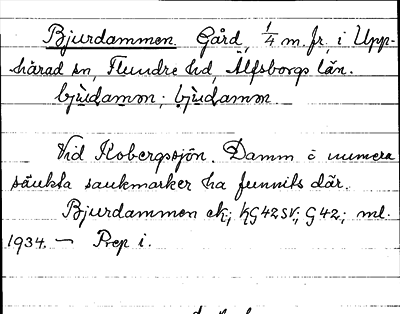 Bjurdammen. Gård, 1/4 m. fr., i Upp-
härad sn, Flundre hd, Älfsborgs län.
bjùdamən; bjùdamən
Vid Kobergssjön. Damm å numera
sänkta sankmarker ha funnits där.
Bjurdammen ek; KG42SV; G42; ml.
1934. — Prep i.